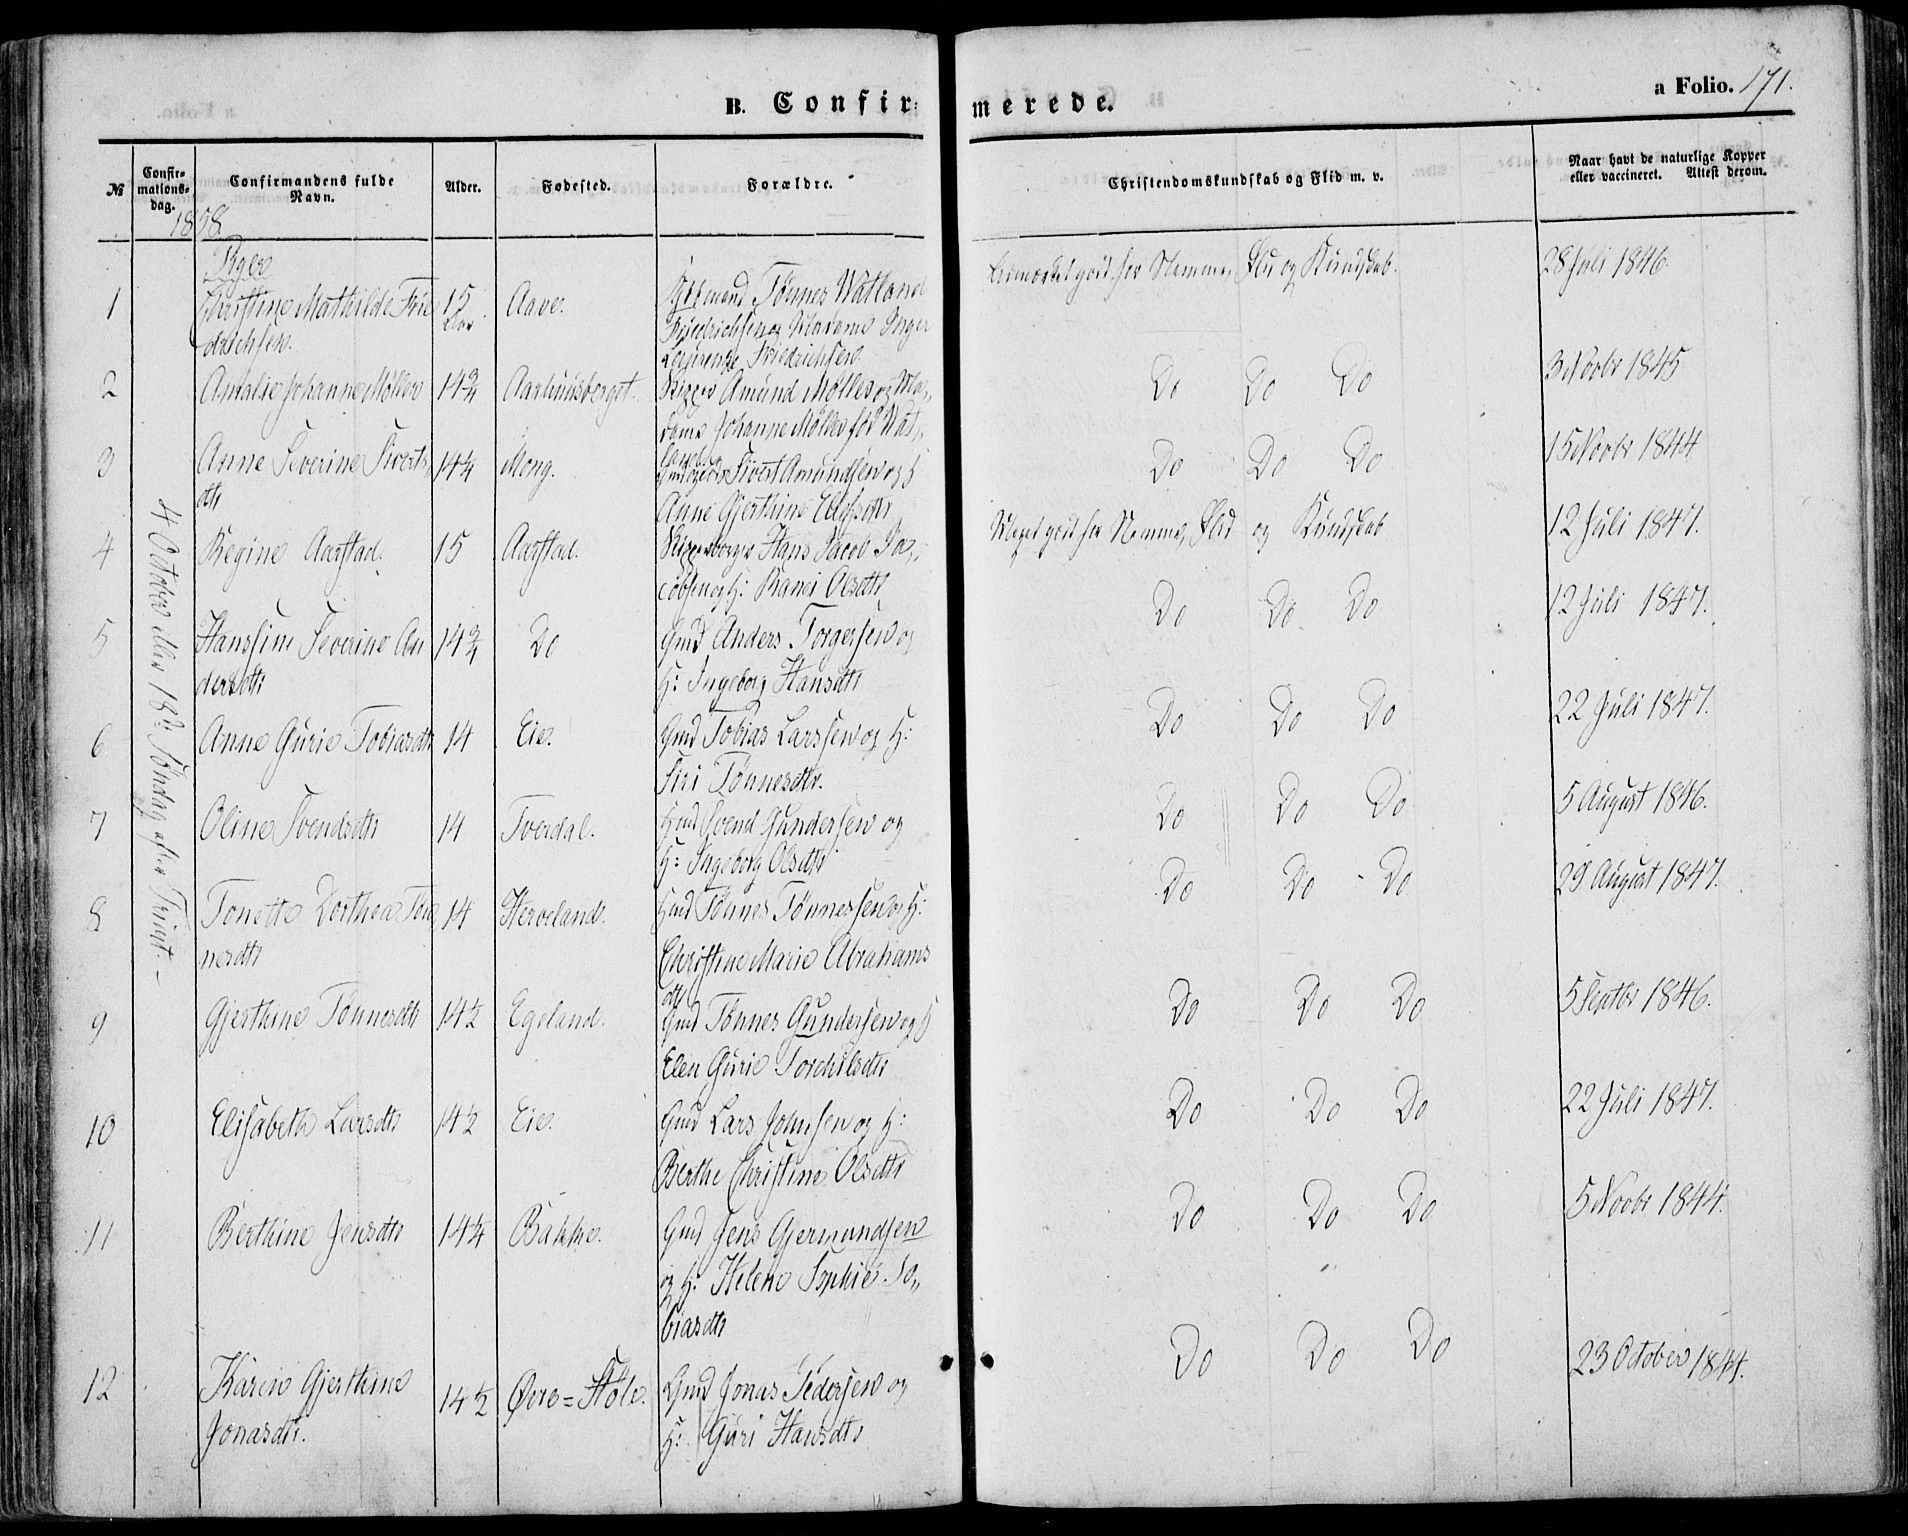 B. Confirmerede.
a Folio. 171.
№
Confirmationsdag.
Confirmandens fulde Navn.
Alder.
Fødested.
Forældre.
Christendomskundskab og Flid m. v.
Naar havt de naturlige Kopper eller vaccineret. Attest derom.
1858
Piger
4 October
18de Søndag efter Trinit.
1
Christine Mathilde Frie
drichsen.
15
Aar.
Aave.
Tønnes Watland
Friedrichsen og Madame Inger
Laurentze Friedrichsen
Flid og Kundskab.
28 Juli 1846.
2
Amalie Johanne Møller
14¾
Aarhuusberget.
Skipper Amund Møller og Ma,,
dame Johanne Møller fød Wat,,
land
Do Do Do
3 Novbr 1845
3
Anne Severine Siverts
dtr
14¼
Mong.
Sivert Amundsen og H
Anne Gjerthine Elefsdtr
Do Do Do
15 Novbr 1844
4
Regine Aarstad.
15
Aarstad.
Hans Jacob Ja,,
cobsen og H: Ranei Olsdtr
Meget godt for Nemme, Flid og Kundskab
12 Juli 1847.
5
Hansine Severine An
dersdtr
14¾
Do
Gmd Anders Torgersen og
H: Ingeborg Hansdtr
Do Do Do
12 Juli 1847.
6
Anne Gurie Tobiasdtr
14
Eie.
Gmd Tobias Larssen og H:
Siri Tønnesdtr.
Do Do Do
22 Juli 1847.
7
Oline Svendsdtr
14
Tverdal.
Hmd Svend Gundersen og
H: Ingeborg Olsdtr
Do Do Do
5 August 1846.
8
Tonette Dorthea Tøn
nesdtr
14
Herveland.
Hmd Tønnes Tønnessen og H:
Christine Marie Abrahams
dtr
Do Do Do
29 August 1847.
9
Gjerthine Tønnesdtr
14½
Egeland.
Gmd Tønnes Gundersen og H
Elen Gurie Torchilsdtr
Do Do Do
5 Septbr 1846.
10
Elisabeth Larsdtr
14½
Eie.
Gmd Lars Johnsen og H:
Berthe Christine Olsdtr
Do Do Do
22 Juli 1847.
11
Berthine Jensdtr
14¼
Bakke.
Gmd Jens Gjermundsen
og H: Helene Sophie To,,
biasdtr
Do Do Do
5 Novbr 1844.
12
Karen Gjerthine
Jonasdtr.
14½
Øvre=Støle.
Gmd Jonas Pedersen og
H: Guri Hansdtr
Do Do Do
23 October 1844.